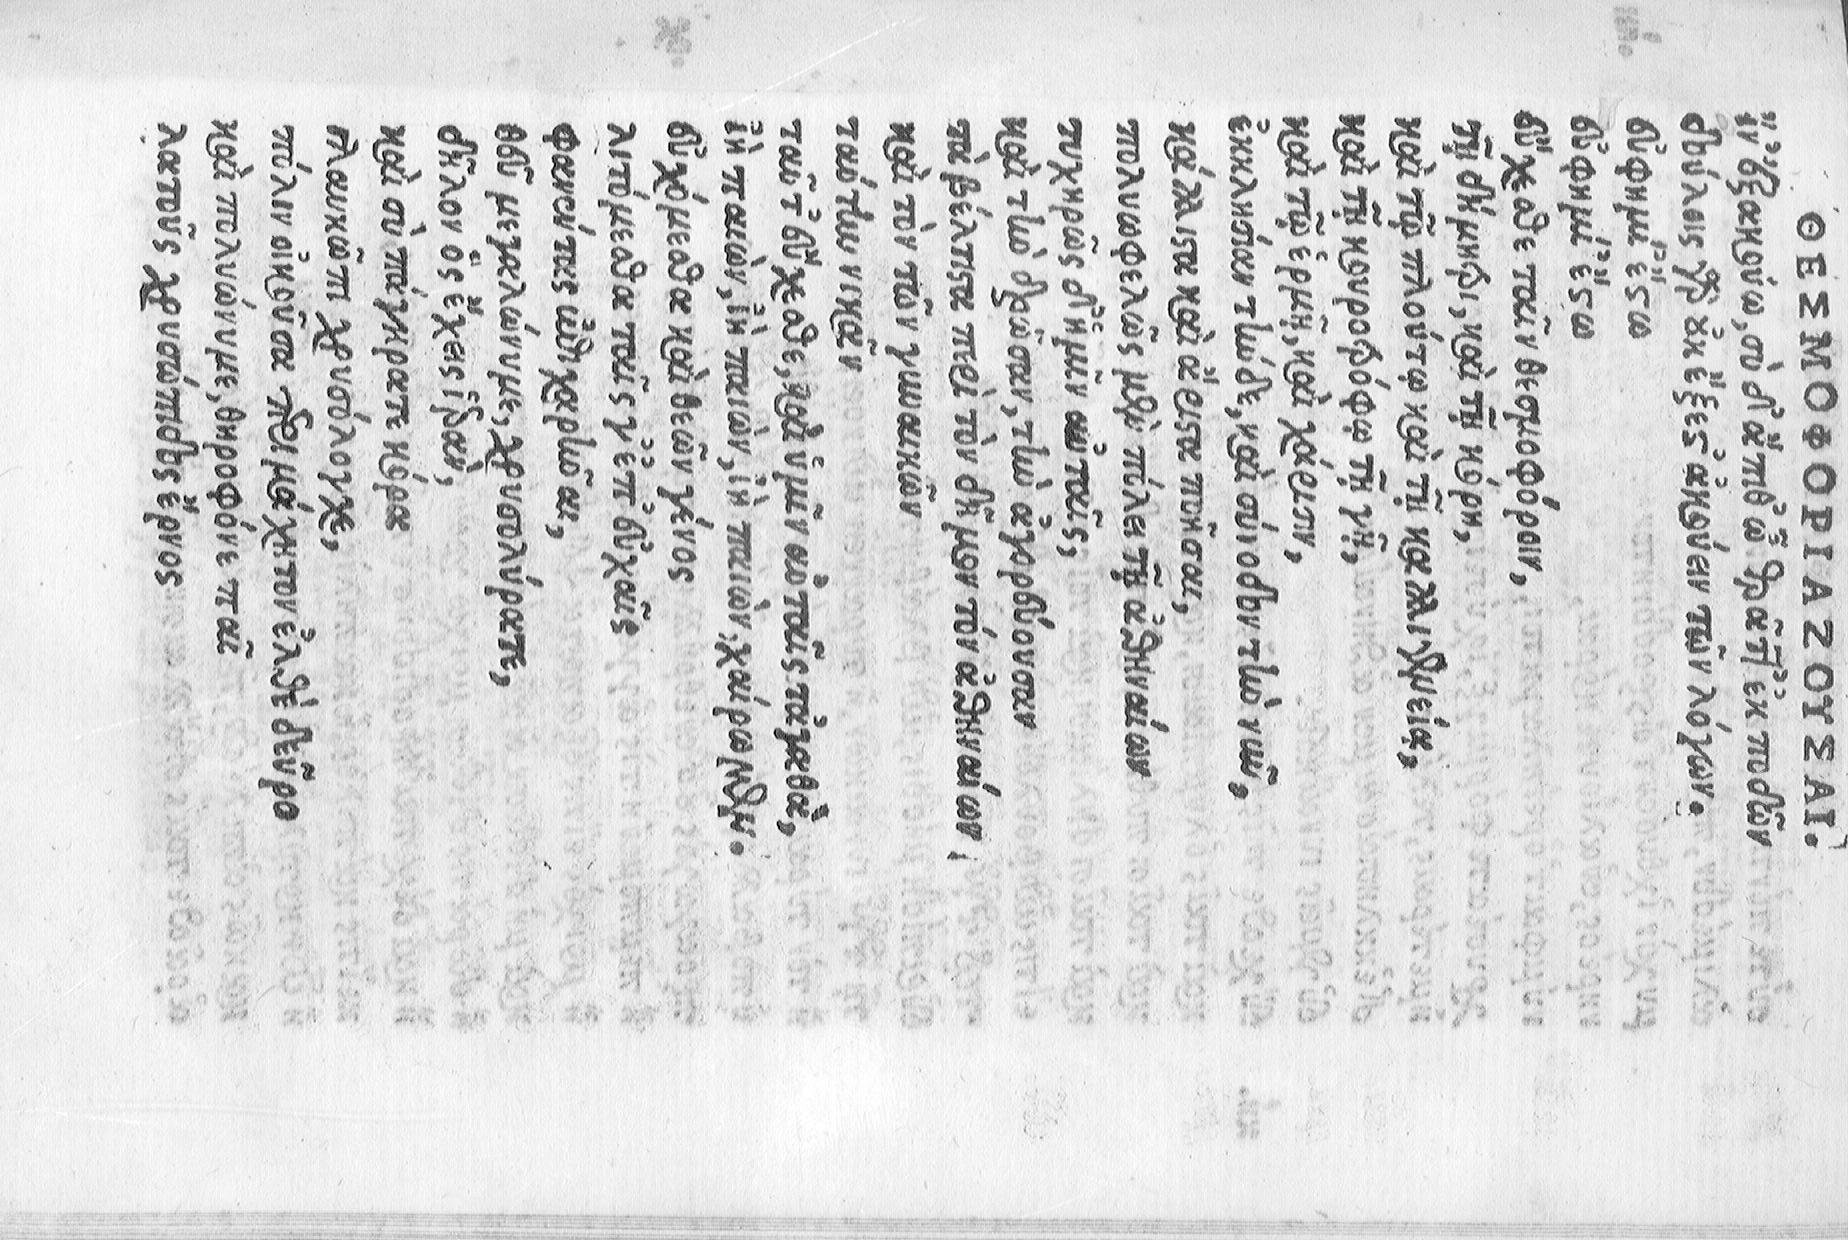 ΘΕΣΜΟΦΟΡΙΑΖΟΥΣΑΙ.
ἵν' ἐξακούω, σὺ δ' ἄπιθ' ὦ θρᾶττ' ἐκποδῶν
δούλοις γὰρ οὐκ ἔξεστ' ἀκούειν τῶν λόγων.
εὐφημί' ἔστω
εὐφημί' ἔστω
εὔχεσθε ταῖν θεσμοφόροιν,
τῇ δήμητρι, καὶ τῇ κόρῃ,
καὶ τῷ πλούτῳ καὶ τῇ καλλιγενείᾳ,
καὶ τῇ κουροτρόφῳ τῇ γῇ,
καὶ τῷ ἑρμῇ, καὶ χάρισιν,
ἐκκλησίαν τὴν δὲ, καὶ σύνοδον τὴν νῦν,
κάλλιστα καὶ ἄριστα ποιῆσαι,
πολυωφελῶς μὲν πόλει τῇ ἀθηναίων
τυχηρῶς δ' ἡμῖν αὐταῖς,
καὶ τὴν δρῶσαν, τὴν ἀγορεύουσαν
τὰ βέλτιστα περὶ τὸν δῆμον τὸν ἀθηναίων
καὶ τὸν τῶν γυναικῶν
ταύτην νικᾶν
ταῦτ' εὔχεσθε, καὶ ὑμῖν αὐταῖς τἀγαθὰ,
ἰὴ παιὼν, ἰὴ παιὼν, ἰὴ παιὼν, χαίρωμεν.
εὐχόμεθα καὶ θεῶν γένος
λιτόμεθα ταῖς γ' ἐπ' εὐχαῖς
φανέντας ἐπιχαρῆναι,
ζεῦ μεγαλώνυμε, χρυσολύρατε,
δῆλον ὃς ἔχεις ἱερὰν,
καὶ σὺ πάγκρατε κόρα
γλαυκῶπι χρυσόλογχε,
πόλιν οἰκοῦσα περιμάχητον ἐλθὲ δεῦρο
καὶ πολυώνυμε, θηροφόνε παῖ
λατοῦς χρυσώπιδος ἔρνος